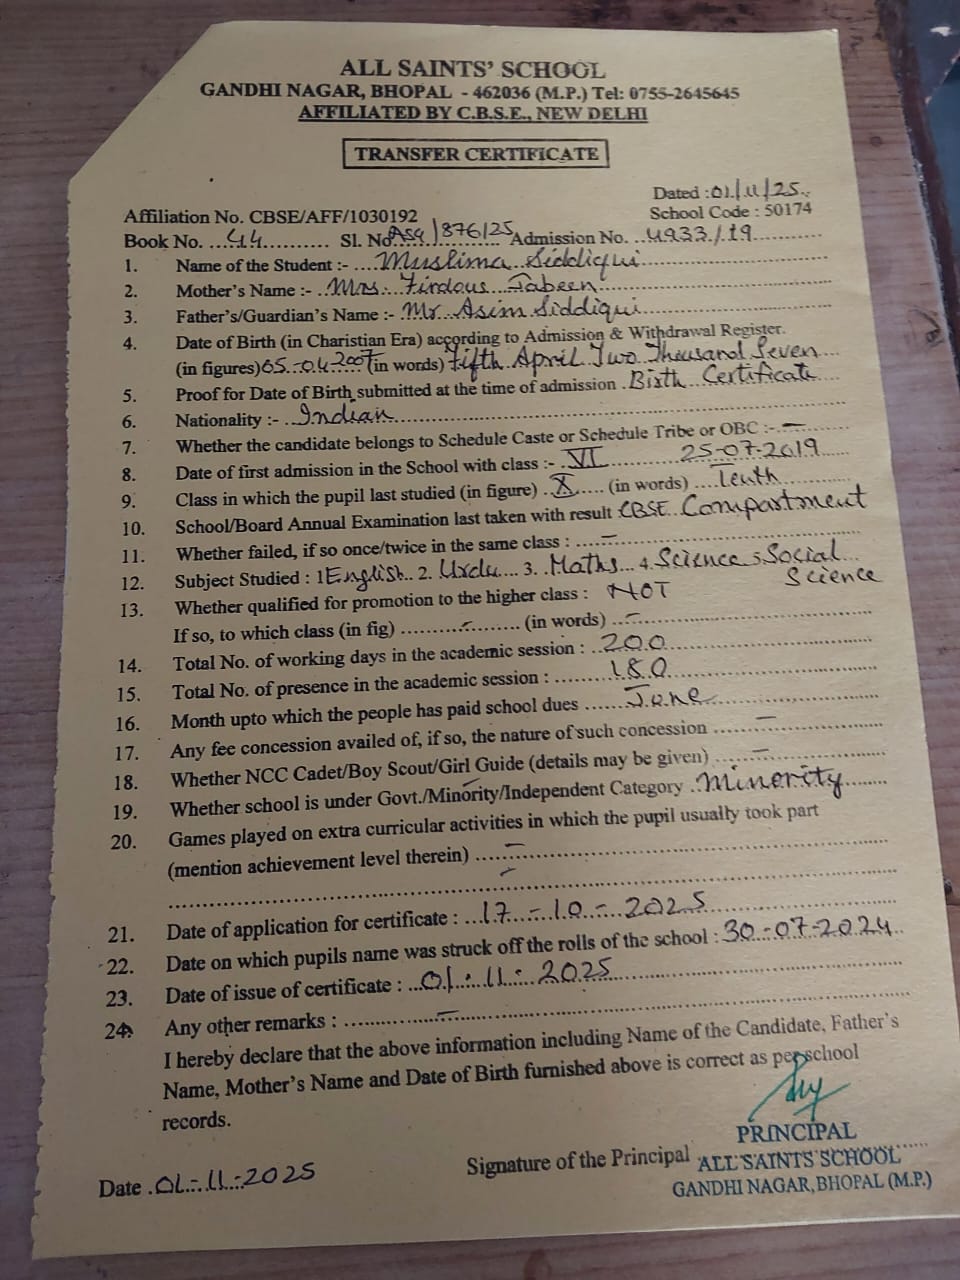 ALL SAINTS' SCHOOL
GANDHI NAGAR, BHOPAL - 462036 (M.P.) Tel: 0755-2645645
AFFILIATED BY C.B.S.E., NEW DELHI
TRANSFER CERTIFICATE
Dated : 01/11/25
Affiliation No. CBSE/AFF/1030192 School Code : 50174
Book No. 44 Sl. No. ASG/876/25 Admission No. 4933/19
1. Name of the Student :- Muslima Siddiqui
2. Mother's Name :- Mrs. Firdous Jabeen
3. Father's/Guardian's Name :- Mr. Asim Siddiqui
4. Date of Birth (in Charistian Era) according to Admission & Withdrawal Register.
(in figures) 05-04-2007 (in words) Fifth April Two Thousand Seven
5. Proof for Date of Birth submitted at the time of admission Birth Certificate
6. Nationality :- Indian
7. Whether the candidate belongs to Schedule Caste or Schedule Tribe or OBC :- —
8. Date of first admission in the School with class :- VI 25-07-2019
9. Class in which the pupil last studied (in figure) X (in words) Tenth
10. School/Board Annual Examination last taken with result CBSE Compartment
11. Whether failed, if so once/twice in the same class : —
12. Subject Studied : 1 English 2. Urdu 3. Maths 4. Science 5 Social Science
13. Whether qualified for promotion to the higher class : NOT
If so, to which class (in fig) — (in words) —
14. Total No. of working days in the academic session : 200
15. Total No. of presence in the academic session : 180
16. Month upto which the people has paid school dues June
17. Any fee concession availed of, if so, the nature of such concession —
18. Whether NCC Cadet/Boy Scout/Girl Guide (details may be given) —
19. Whether school is under Govt./Minority/Independent Category Minority
20. Games played on extra curricular activities in which the pupil usually took part
(mention achievement level therein) —
21. Date of application for certificate : 17-10-2025
22. Date on which pupils name was struck off the rolls of the school : 30-07-2024
23. Date of issue of certificate : 01-11-2025
24. Any other remarks : —
I hereby declare that the above information including Name of the Candidate, Father's
Name, Mother's Name and Date of Birth furnished above is correct as per school
records.
PRINCIPAL
Signature of the Principal ALL SAINTS SCHOOL
Date 01-11-2025 GANDHI NAGAR, BHOPAL (M.P.)